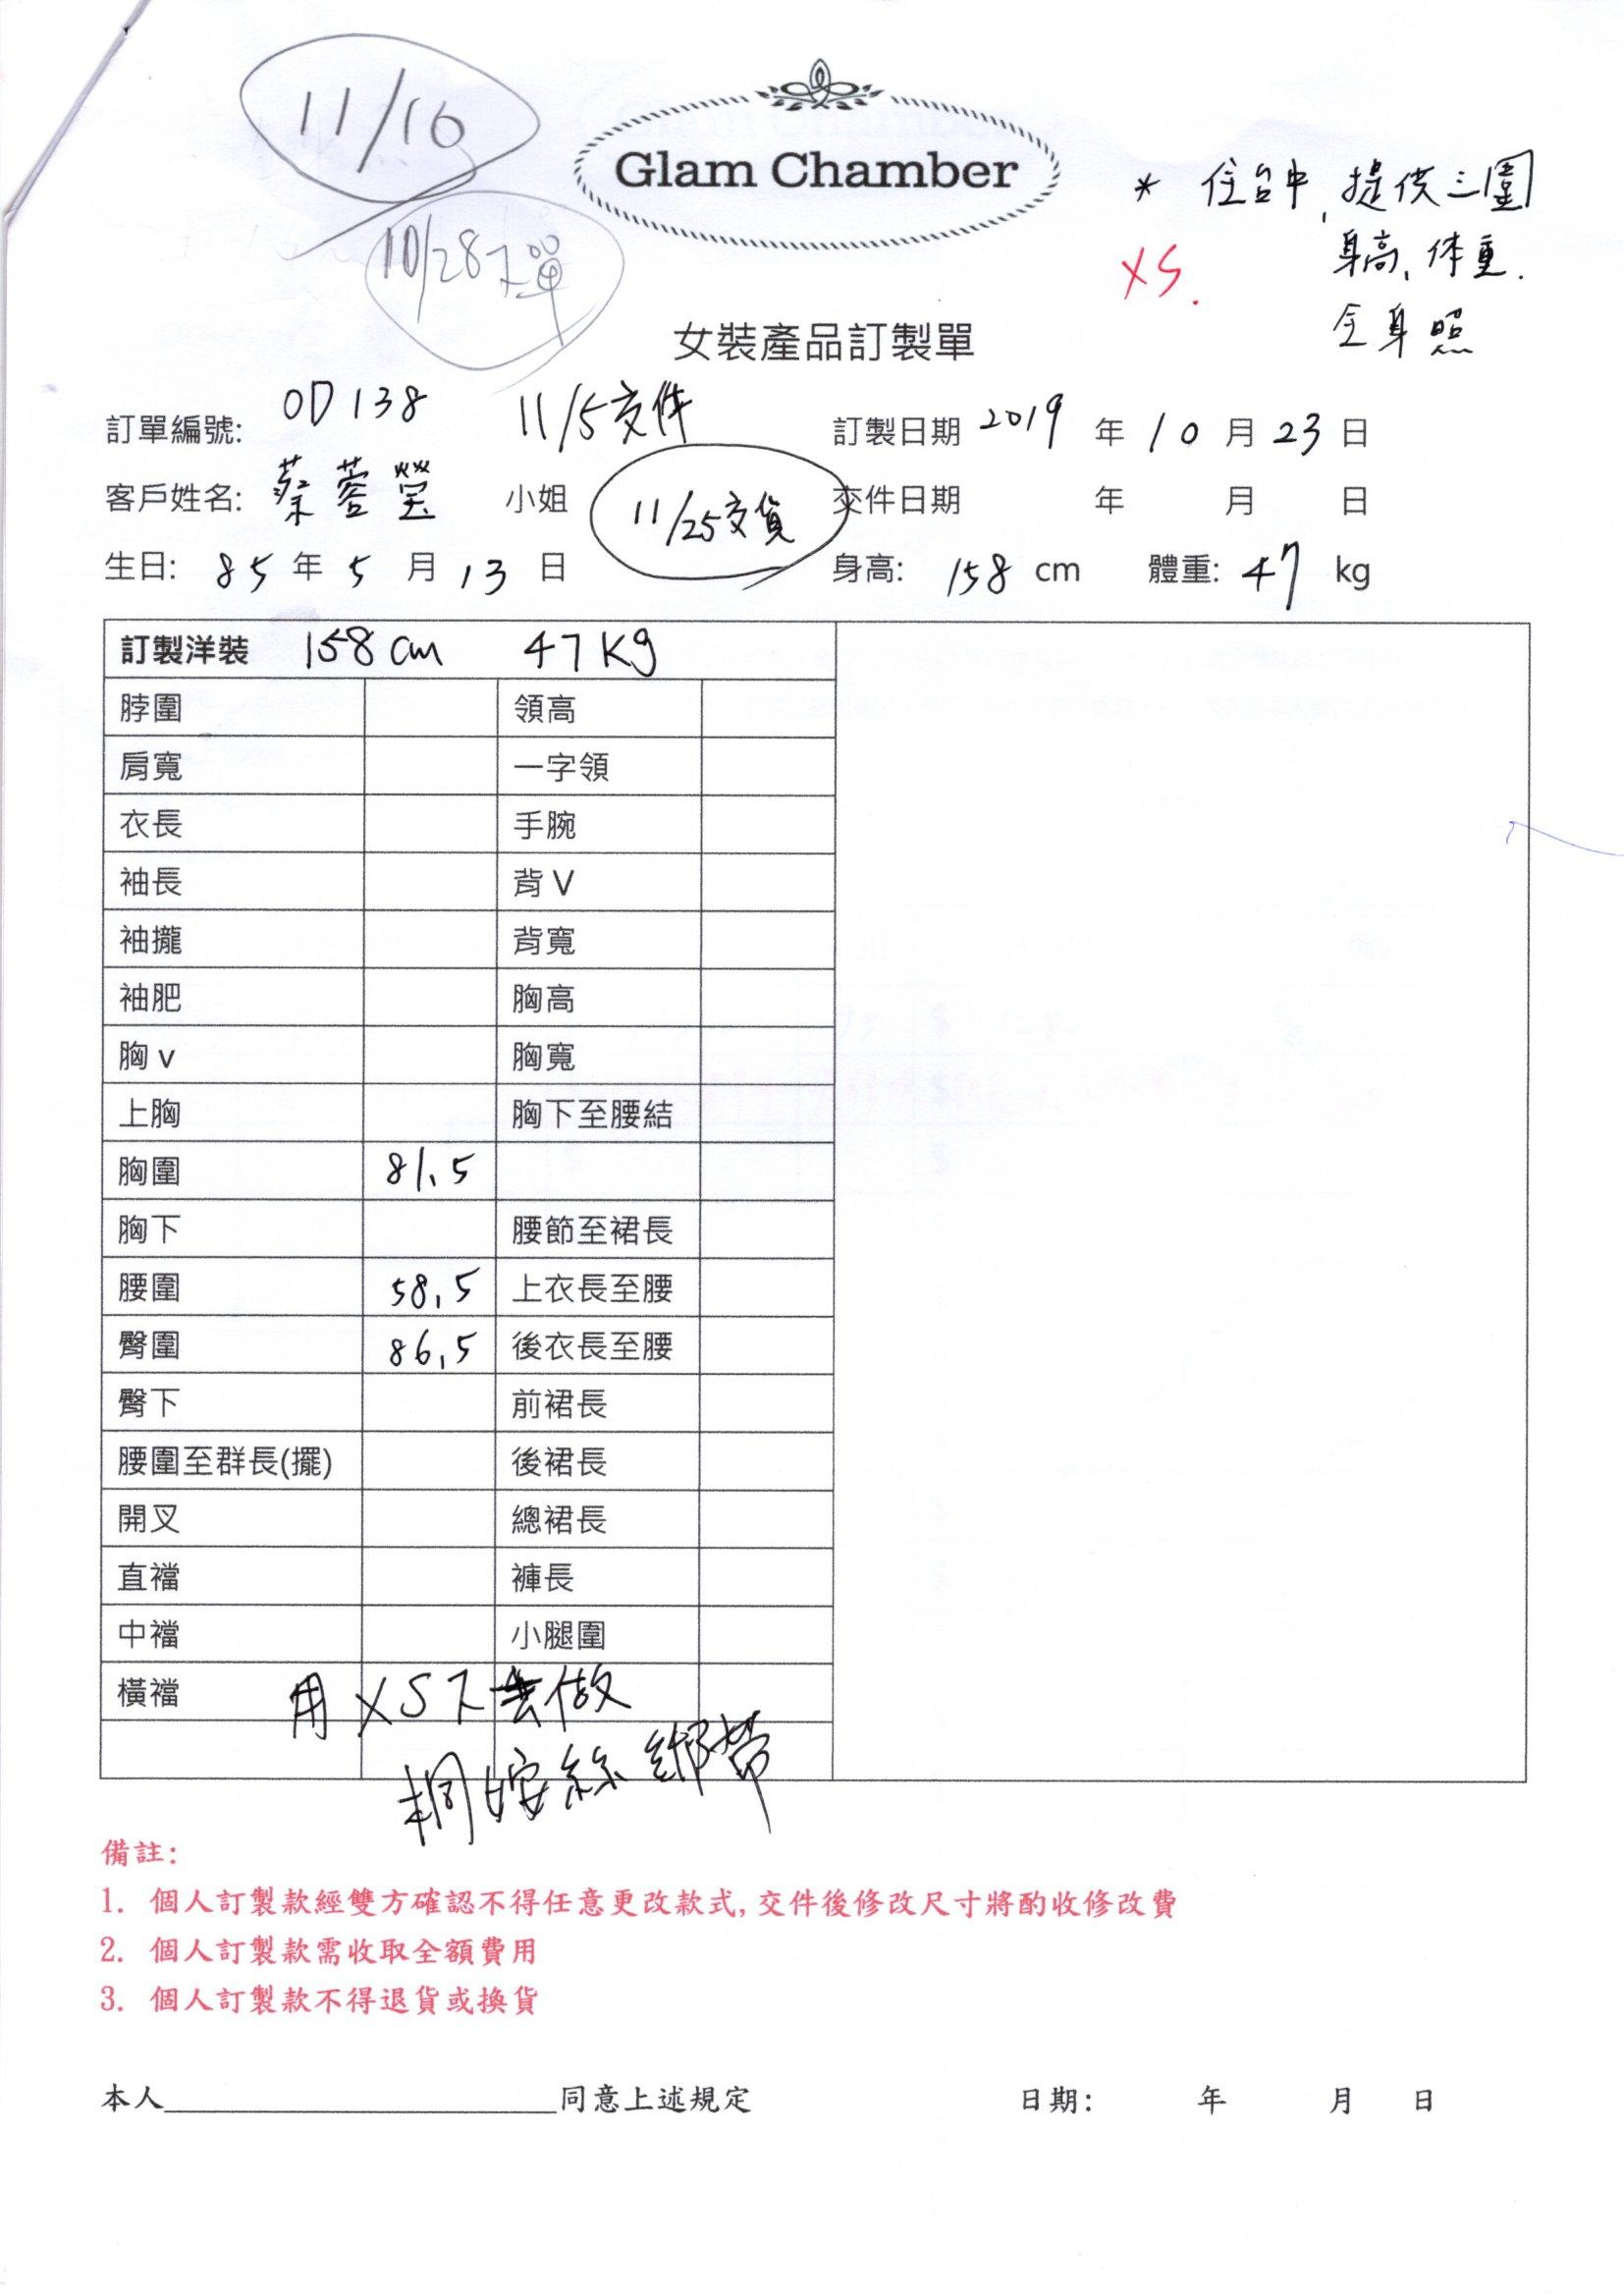 11/16
Glam Chamber
* 住台中, 提供三圍
身高、体重.
全身照
XS.
10/28下單
女裝產品訂製單
訂單編號: OD138 11/5交件 訂製日期 2019 年 10 月 23 日
客戶姓名: 蔡蓉瑩 小姐 11/25交貨 交件日期 年 月 日
生日: 85 年 5 月 13 日 身高: 158 cm 體重: 47 kg
訂製洋裝 158cm 47Kg
脖圍 領高
肩寬 一字領
衣長 手腕
袖長 背 V
袖攏 背寬
袖肥 胸高
胸 v 胸寬
上胸 胸下至腰結
胸圍 81.5
胸下 腰節至裙長
腰圍 58.5 上衣長至腰
臀圍 86.5 後衣長至腰
臀下 前裙長
腰圍至群長(擺) 後裙長
開叉 總裙長
直襠 褲長
中襠 小腿圍
橫襠 用XS下去做
絲綁帶
備註:
1. 個人訂製款經雙方確認不得任意更改款式, 交件後修改尺寸將酌收修改費
2. 個人訂製款需收取全額費用
3. 個人訂製款不得退貨或換貨
本人____________________同意上述規定 日期: 年 月 日